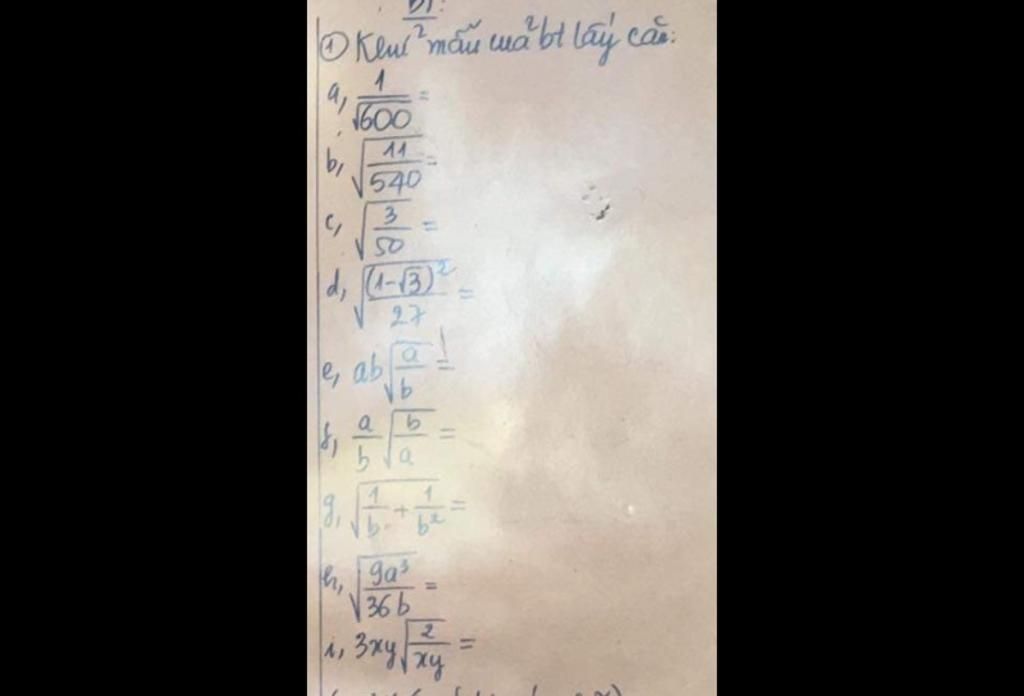 ① Khử mẫu của bt lấy căn:
a, 1/√600 =
b, √(11/540) =
c, √(3/50) =
d, √((1-√3)²/27) =
e, ab√(a/b) =
f, a/b √(b/a) =
g, √(1/b + 1/b²) =
h, √(9a³/36b) =
i, 3xy√(2/xy) =